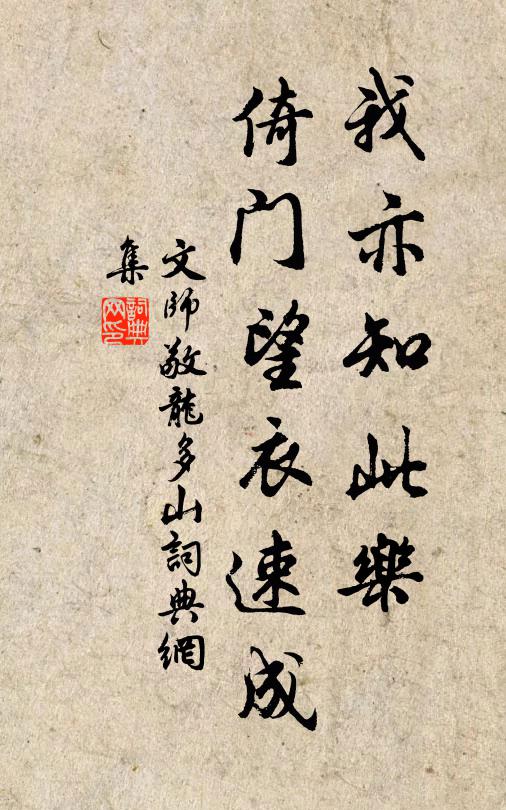 我亦知此樂
倚门望衣速成
文師敬龍多山詞典網
集
詞典网印